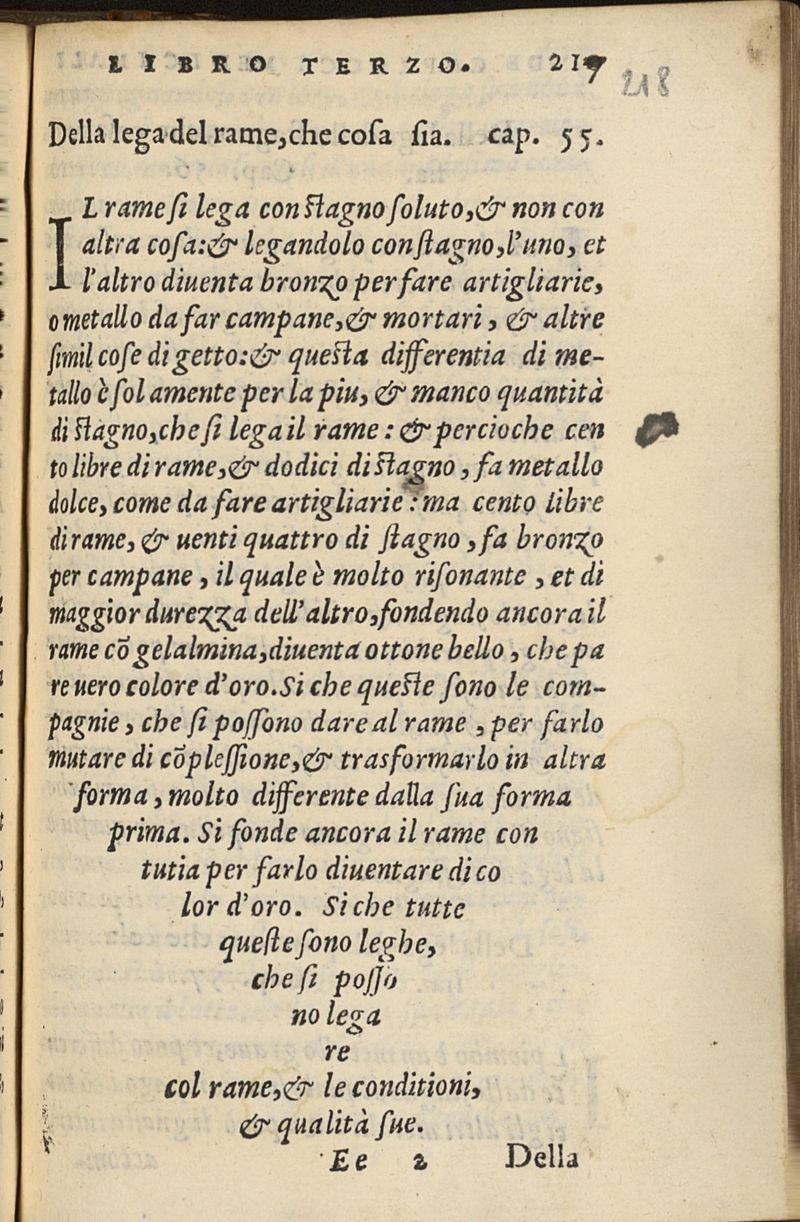 LIBRO TERZO. 217
218
Della lega del rame, che cosa sia. cap. 55.
IL rame si lega con stagno soluto, & non con
altra cosa: & legandolo con stagno, l'uno, et
l'altro diuenta bronzo per fare artigliarie,
o metallo da far campane, & mortari, & altre
simil cose di getto: & questa differentia di me-
tallo è solamente per la piu, & manco quantità
di stagno, che si lega il rame: & percioche cen
to libre di rame, & dodici di stagno, fa metallo
dolce, come da fare artigliarie: ma cento libre
di rame, & uenti quattro di stagno, fa bronzo
per campane, il quale è molto risonante, et di
maggior durezza dell'altro, fondendo ancora il
rame cõ gelalmina, diuenta ottone bello, che pa
re uero colore d'oro. Si che queste sono le com-
pagnie, che si possono dare al rame, per farlo
mutare di cõplessione, & trasformarlo in altra
forma, molto differente dalla sua forma
prima. Si fonde ancora il rame con
tutia per farlo diuentare di co
lor d'oro. Si che tutte
queste sono leghe,
che si posso
no lega
re
col rame, & le conditioni,
& qualità sue.
Ee 2 Della